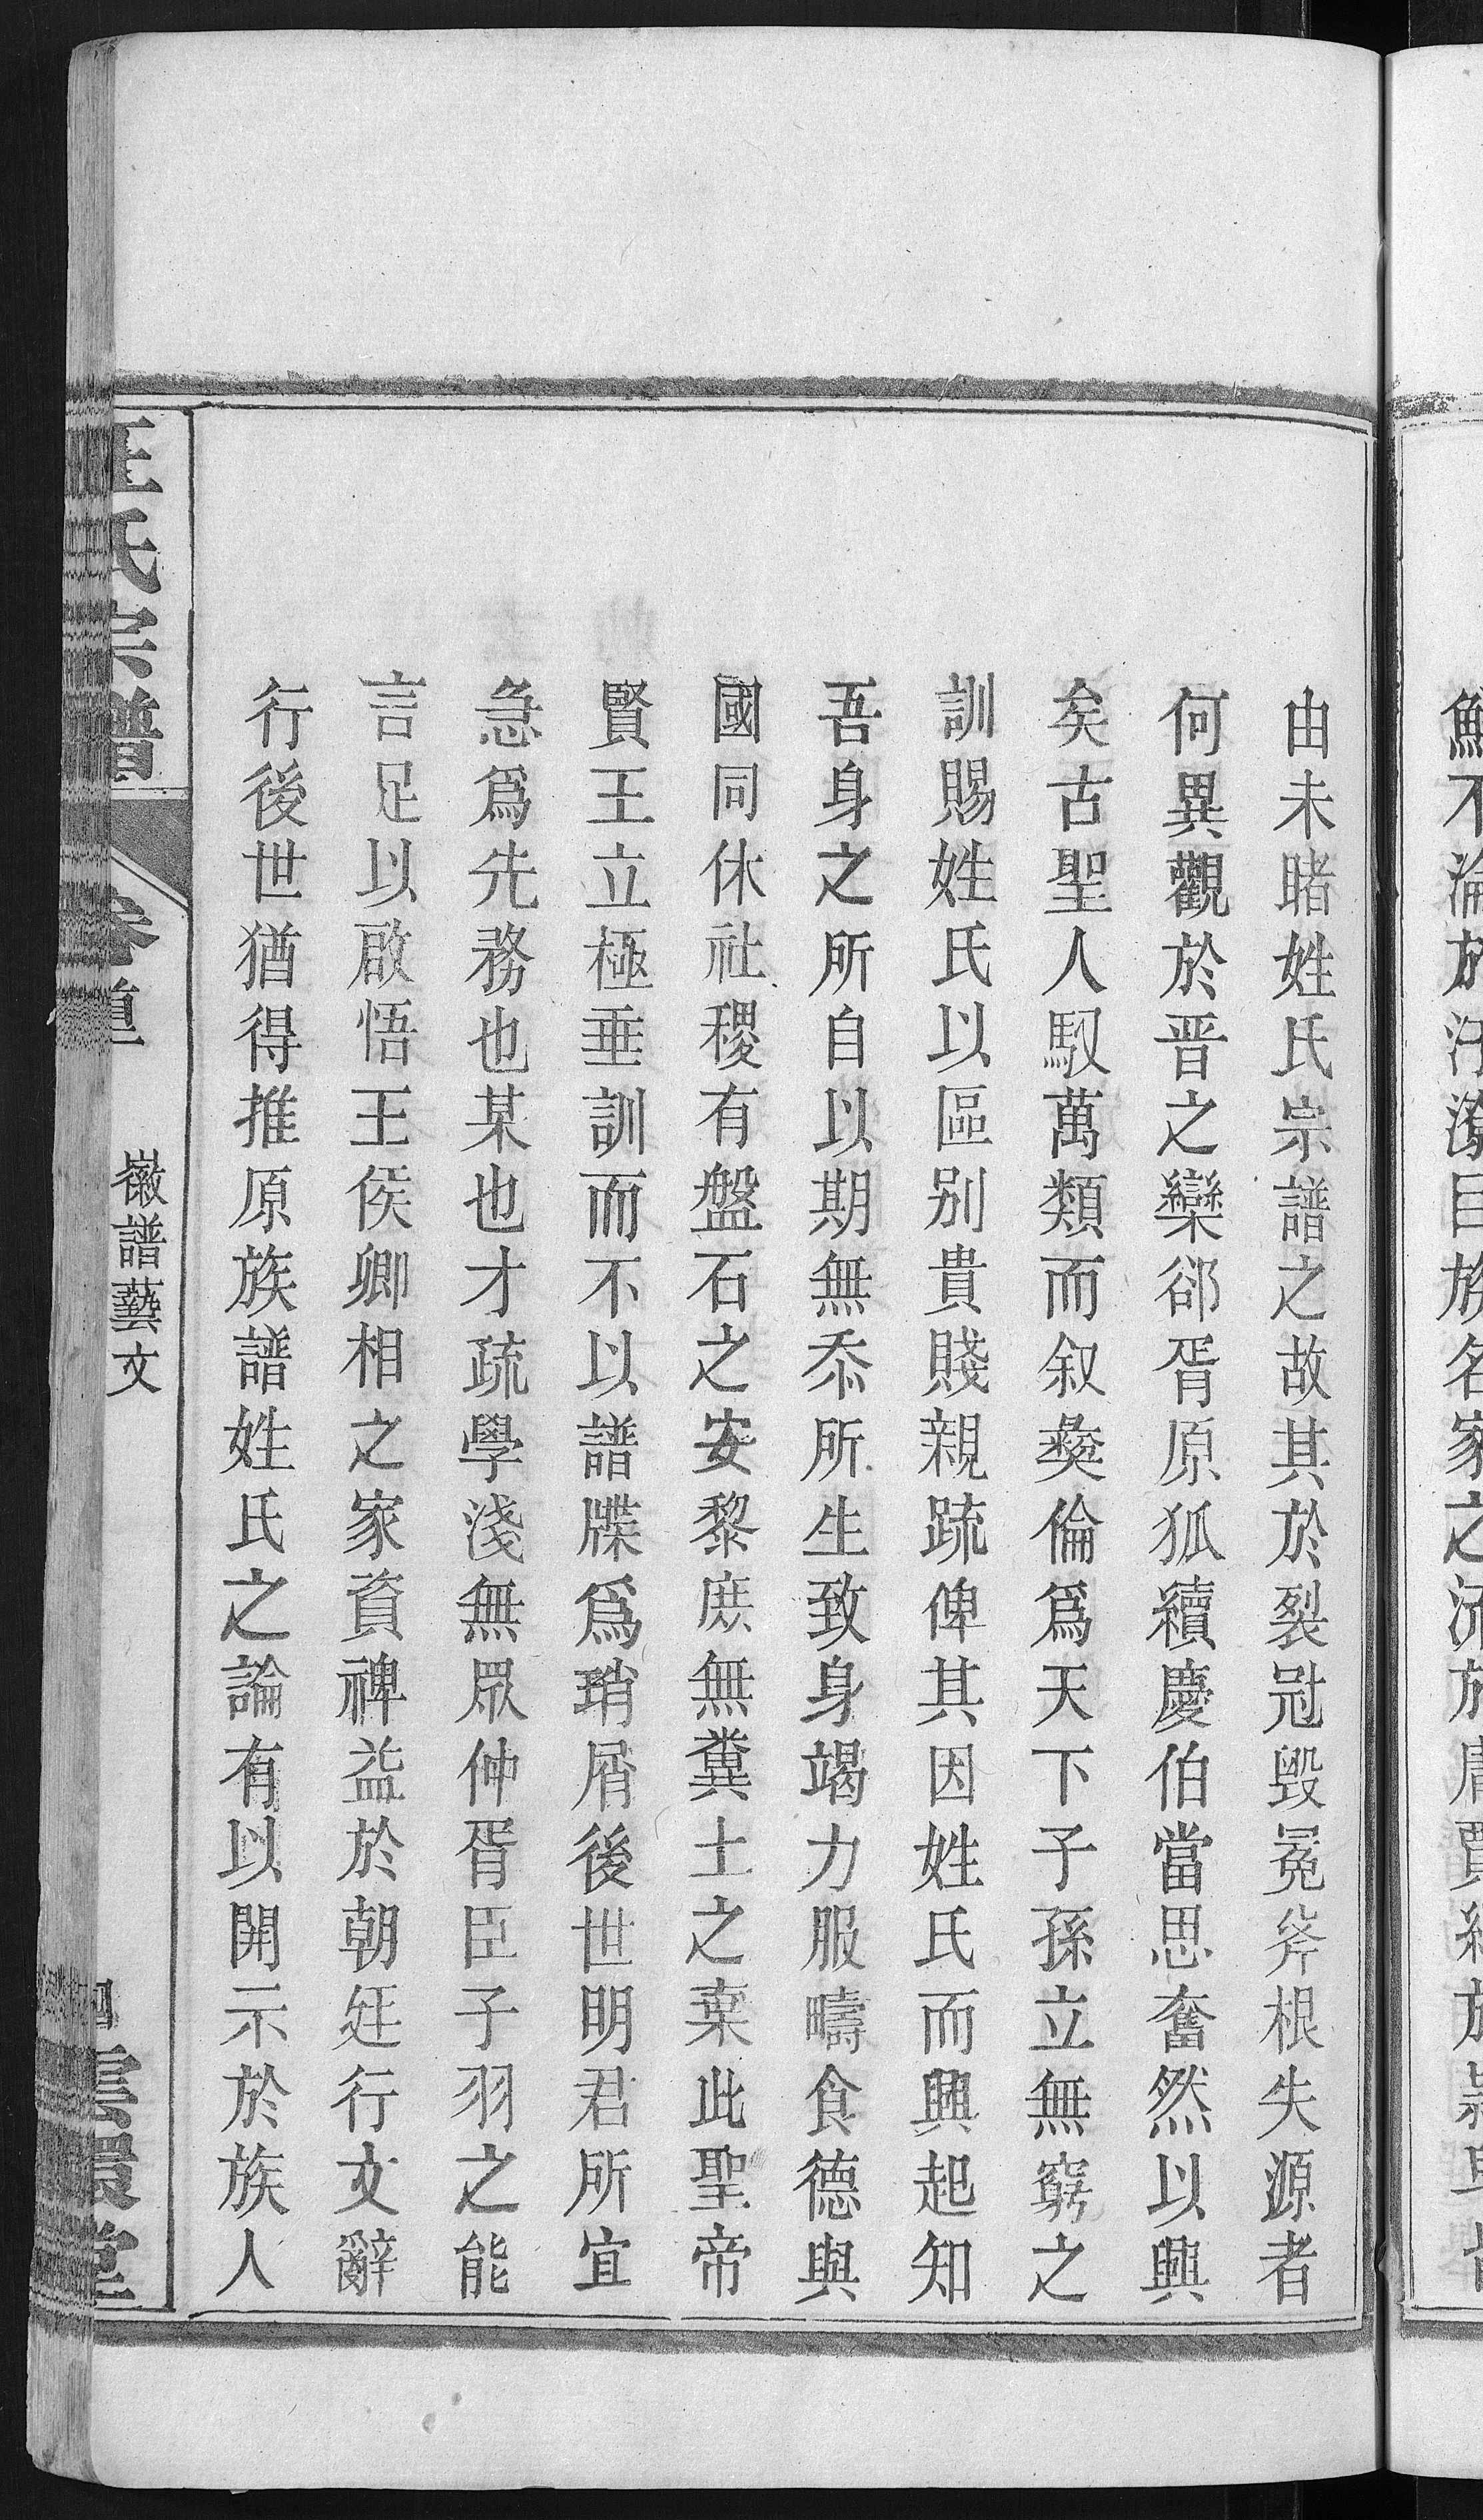 由未睹姓氏宗譜之故其於裂冠毀冕斧根失源者
何異觀於晋之欒郤胥原狐續慶伯當思奮然以興
矣古聖人馭萬類而叙彜倫爲天下子孫立無窮之
訓賜姓氏以區别貴賤親疏俾其因姓氏而興起知
吾身之所自以期無忝所生致身竭力服疇食德與
國同休社稷有盤石之安黎庶無糞土之棄此聖帝
賢王立極垂訓而不以譜牒爲瑣屑後世明君所宜
急爲先務也某也才疏學淺無眾仲胥臣子羽之能
言足以啟悟王侯卿相之家資裨益於朝廷行文辭
行後世猶得推原族譜姓氏之論有以開示於族人
汪氏宗譜
徽譜藝文